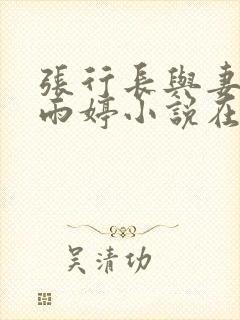 張行長與妻
雨婷小說在
吴清功